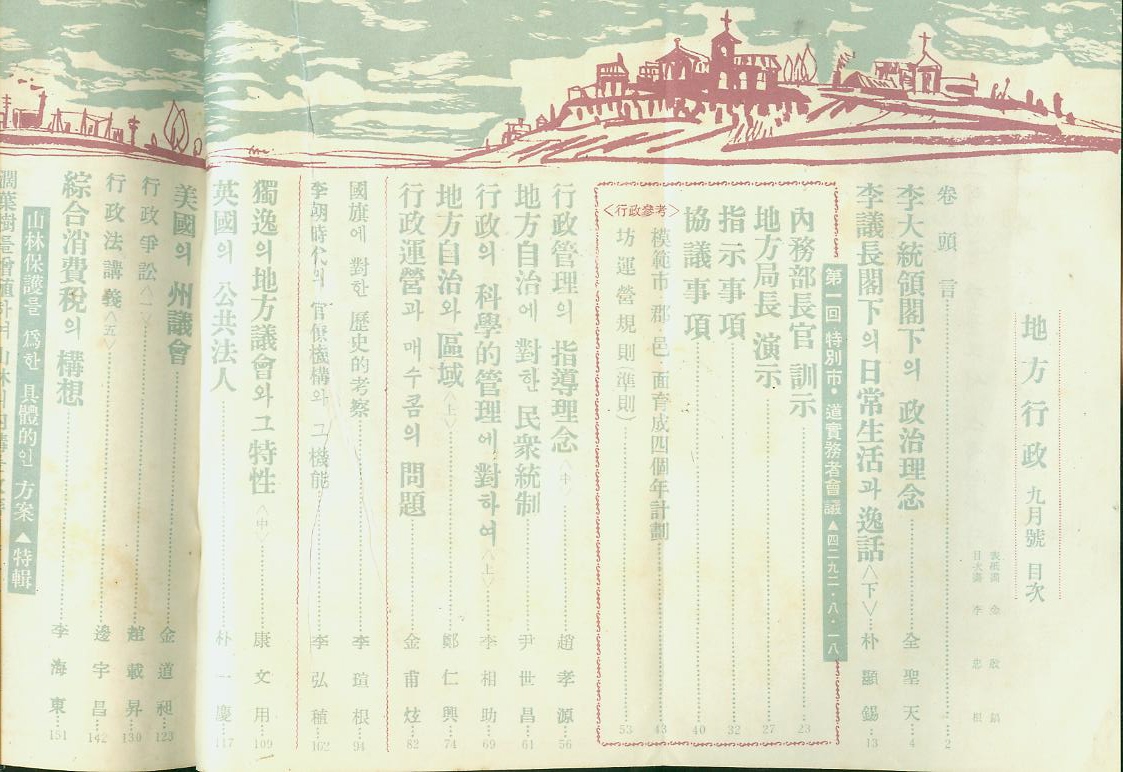 地方行政 九月號 目次
表紙畫 金
目次畫 李忠根
卷頭言 2
李大統領閣下의 政治理念 全聖天 4
李議長閣下의 日常生活과 逸話<下> 朴顯錫 13
第一回 特別市·道實務者會議▲四二九二·八·一八
內務部長官 訓示 23
地方局長 演示 27
指示事項 32
協議事項 40
<行政參考>
模範市·郡·邑·面育成四個年計劃 43
坊運營規則(準則) 53
行政管理의 指導理念<中> 趙孝源 56
地方自治에 對한 民衆統制 尹世昌 61
行政의 科學的管理에 對하여<上> 李相助 69
地方自治와 區域<上> 鄭仁興 74
行政運營과 매수콤의 問題 金甫炫 82
國旗에 對한 歷史的考察 李瑄根 94
李朝時代의 官僚機構와 그 機能 李弘稙 162
獨逸의 地方議會와 그 特性<中> 康文用 109
英國의 公共法人 朴一慶 117
美國의 州議會 金道昶 123
行政爭訟<一> 載昇 130
行政法講義<五> 邊宇昌 142
綜合消費稅의 構想 李海東 151
山林保護를 爲한 具體的인 方案▲特輯
闊葉樹를增殖하여山林의